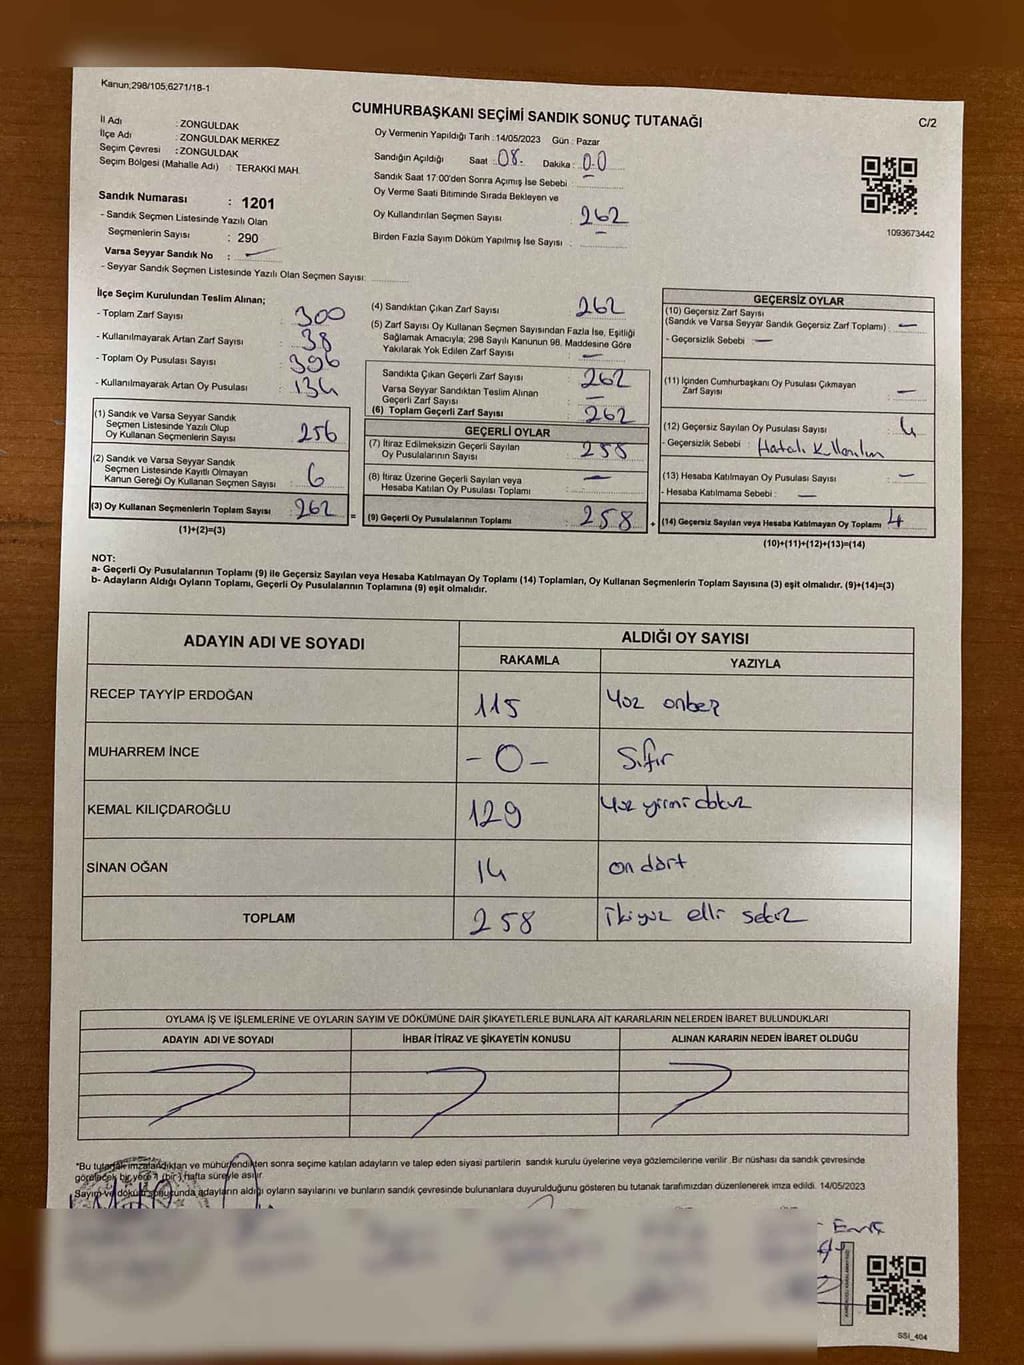 Kanun;298/105,6271/18-1
CUMHURBAŞKANI SEÇİMİ SANDIK SONUÇ TUTANAĞI
C/2
İl Adı : ZONGULDAK
İlçe Adı : ZONGULDAK MERKEZ
Seçim Çevresi : ZONGULDAK
Seçim Bölgesi (Mahalle Adı) : TERAKKİ MAH.
Sandık Numarası : 1201
- Sandık Seçmen Listesinde Yazılı Olan
Seçmenlerin Sayısı : 290
Varsa Seyyar Sandık No :
- Seyyar Sandık Seçmen Listesinde Yazılı Olan Seçmen Sayısı:
Oy Vermenin Yapıldığı Tarih : 14/05/2023 Gün : Pazar
Sandığın Açıldığı Saat : 08. Dakika : 00
Sandık Saat 17:00'den Sonra Açımış İse Sebebi : —
Oy Verme Saati Bitiminde Sırada Bekleyen ve
Oy Kullandırılan Seçmen Sayısı : 262
Birden Fazla Sayım Döküm Yapılmış İse Sayısı : —
1093673442
İlçe Seçim Kurulundan Teslim Alınan;
- Toplam Zarf Sayısı : 300
- Kullanılmayarak Artan Zarf Sayısı : 38
- Toplam Oy Pusulası Sayısı : 396
- Kullanılmayarak Artan Oy Pusulası : 134
(1) Sandık ve Varsa Seyyar Sandık
Seçmen Listesinde Yazılı Olup
Oy Kullanan Seçmenlerin Sayısı : 256
(2) Sandık ve Varsa Seyyar Sandık
Seçmen Listesinde Kayıtlı Olmayan
Kanun Gereği Oy Kullanan Seçmen Sayısı : 6
(3) Oy Kullanan Seçmenlerin Toplam Sayısı : 262
(1)+(2)=(3)
(4) Sandıktan Çıkan Zarf Sayısı : 262
(5) Zarf Sayısı Oy Kullanan Seçmen Sayısından Fazla İse, Eşitliği
Sağlamak Amacıyla; 298 Sayılı Kanunun 98. Maddesine Göre
Yakılarak Yok Edilen Zarf Sayısı : —
Sandıkta Çıkan Geçerli Zarf Sayısı : 262
Varsa Seyyar Sandıktan Teslim Alınan
Geçerli Zarf Sayısı : —
(6) Toplam Geçerli Zarf Sayısı : 262
GEÇERLİ OYLAR
(7) İtiraz Edilmeksizin Geçerli Sayılan
Oy Pusulalarının Sayısı : 258
(8) İtiraz Üzerine Geçerli Sayılan veya
Hesaba Katılan Oy Pusulası Toplamı : —
= (9) Geçerli Oy Pusulalarının Toplamı : 258 +
GEÇERSİZ OYLAR
(10) Geçersiz Zarf Sayısı
(Sandık ve Varsa Seyyar Sandık Geçersiz Zarf Toplamı) : —
- Geçersizlik Sebebi : —
(11) İçinden Cumhurbaşkanı Oy Pusulası Çıkmayan
Zarf Sayısı : —
(12) Geçersiz Sayılan Oy Pusulası Sayısı : 4
- Geçersizlik Sebebi : Hatalı Kullanılım
(13) Hesaba Katılmayan Oy Pusulası Sayısı : —
- Hesaba Katılmama Sebebi : —
(14) Geçersiz Sayılan veya Hesaba Katılmayan Oy Toplamı : 4
(10)+(11)+(12)+(13)=(14)
NOT:
a- Geçerli Oy Pusulalarının Toplamı (9) ile Geçersiz Sayılan veya Hesaba Katılmayan Oy Toplamı (14) Toplamları, Oy Kullanan Seçmenlerin Toplam Sayısına (3) eşit olmalıdır. (9)+(14)=(3)
b- Adayların Aldığı Oyların Toplamı, Geçerli Oy Pusulalarının Toplamına (9) eşit olmalıdır.
ADAYIN ADI VE SOYADI
ALDIĞI OY SAYISI
RAKAMLA YAZIYLA
RECEP TAYYİP ERDOĞAN 115 Yüz onbeş
MUHARREM İNCE -0- Sıfır
KEMAL KILIÇDAROĞLU 129 Yüz yirmi dokuz
SİNAN OĞAN 14 on dört
TOPLAM 258 İkiyüz elli sekiz
OYLAMA İŞ VE İŞLEMLERİNE VE OYLARIN SAYIM VE DÖKÜMÜNE DAİR ŞİKAYETLERLE BUNLARA AİT KARARLARIN NELERDEN İBARET BULUNDUKLARI
ADAYIN ADI VE SOYADI İHBAR İTİRAZ VE ŞİKAYETİN KONUSU ALINAN KARARIN NEDEN İBARET OLDUĞU
*Bu tutanak imzalandıktan ve mühürlendikten sonra seçime katılan adayların ve talep eden siyasi partilerin sandık kurulu üyelerine veya gözlemcilerine verilir .Bir nüshası da sandık çevresinde
görülecek bir yere 1 (bir) hafta süreyle asılır.
Sayım ve döküm sonucunda adayların aldığı oyların sayılarını ve bunların sandık çevresinde bulunanlara duyurulduğunu gösteren bu tutanak tarafımızdan düzenlenerek imza edildi. 14/05/2023
SSI_404